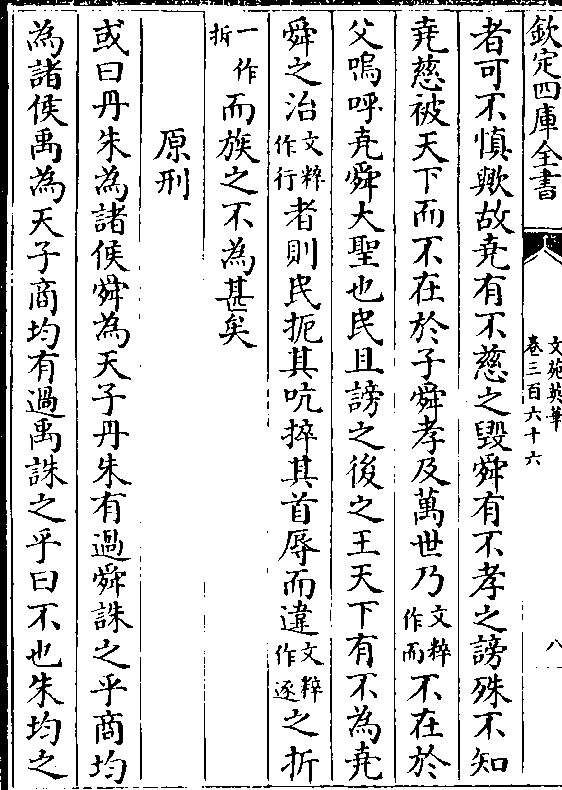 欽定四庫全書
文苑英華
卷三百六十六
八
者可不慎歟故堯有不慈之毀舜有不孝之謗殊不知
堯慈被天下而不在於子舜孝及萬世乃文粹作而不在於
父嗚呼堯舜大聖也民且謗之後之王天下有不為堯
舜之治文粹作行者則民扼其吭捽其首辱而違文粹作逐之折
一作拆而族之不為甚矣
原刑
或曰丹朱為諸侯舜為天子丹朱有過舜誅之乎商均
為諸侯禹為天子商均有過禹誅之乎曰不也朱均之